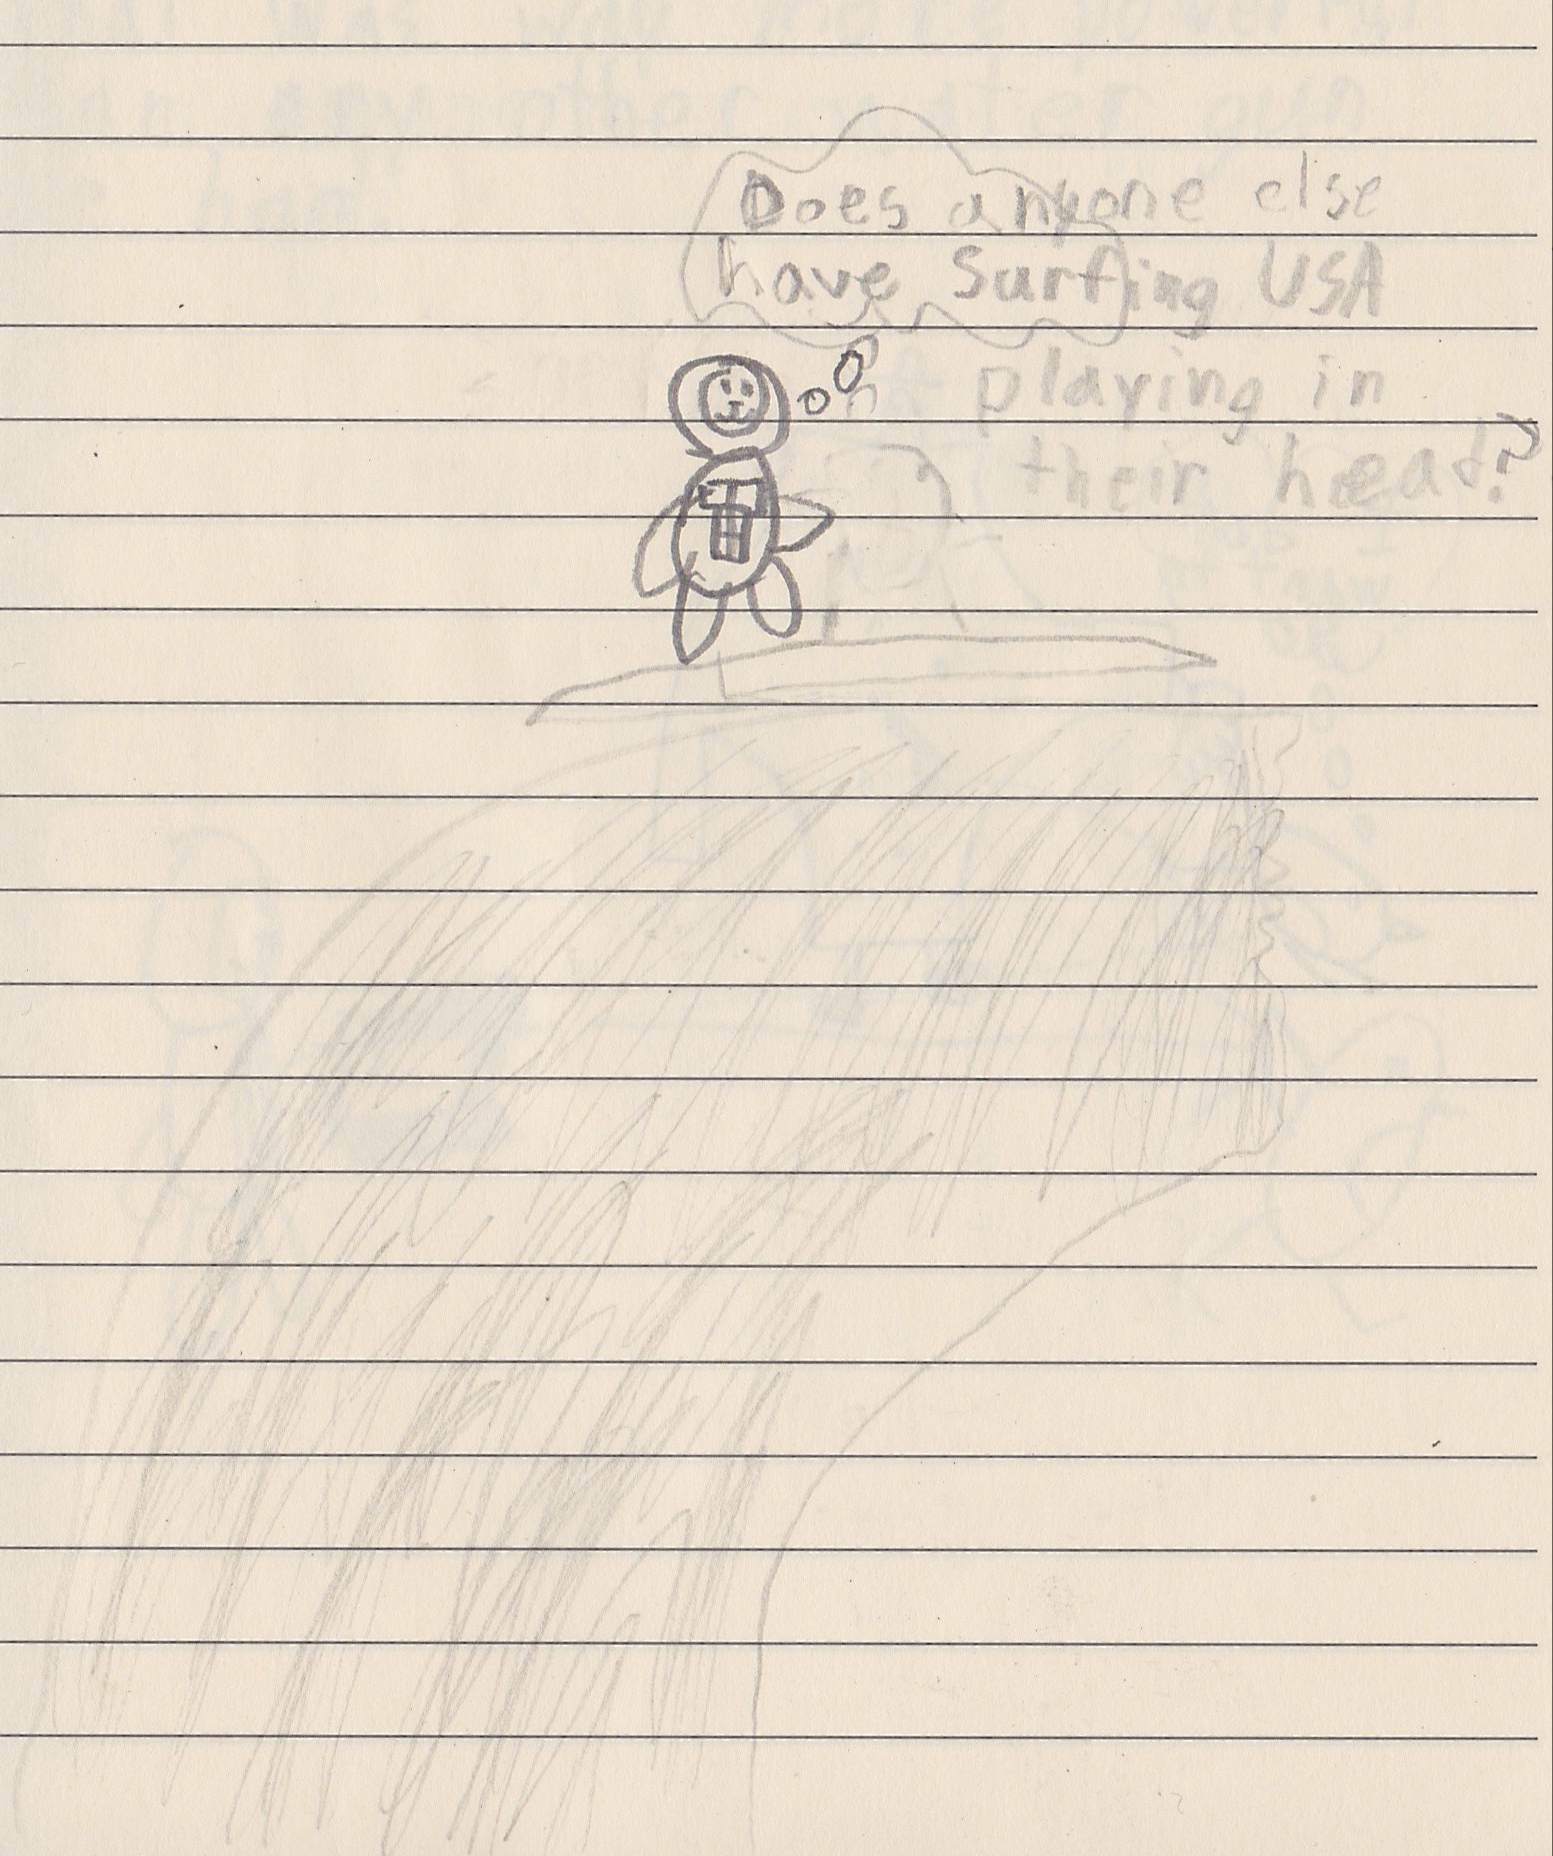 Does anyone else
have Surfing USA
playing in
their head?